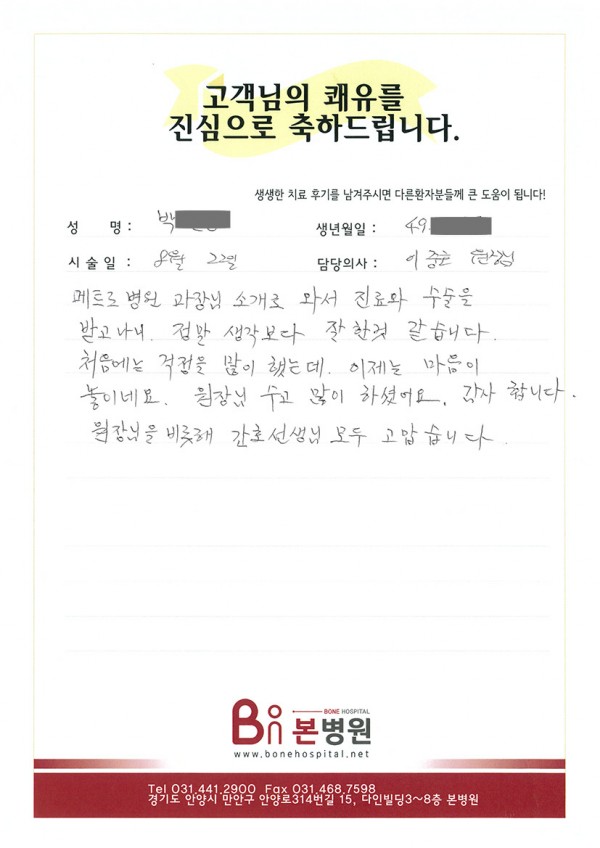 고객님의 쾌유를
진심으로 축하드립니다.
생생한 치료 후기를 남겨주시면 다른환자분들께 큰 도움이 됩니다!
성 명 : 박 생년월일 : 49.
시술일 : 8월 22일 담당의사 : 이준호 원장님
메트로 병원 과장님 소개로 와서 진료와 수술을
받고나니. 정말 생각보다 잘한것 같습니다.
처음에는 걱정을 많이 했는데. 이제는 마음이
놓이네요. 원장님 수고 많이 하셨어요. 감사 합니다.
원장님을 비롯해 간호선생님 모두 고맙습니다.
BONE HOSPITAL
Bon 본병원
www.bonehospital.net
Tel 031.441.2900 Fax 031.468.7598
경기도 안양시 만안구 안양로314번길 15, 다인빌딩3~8층 본병원